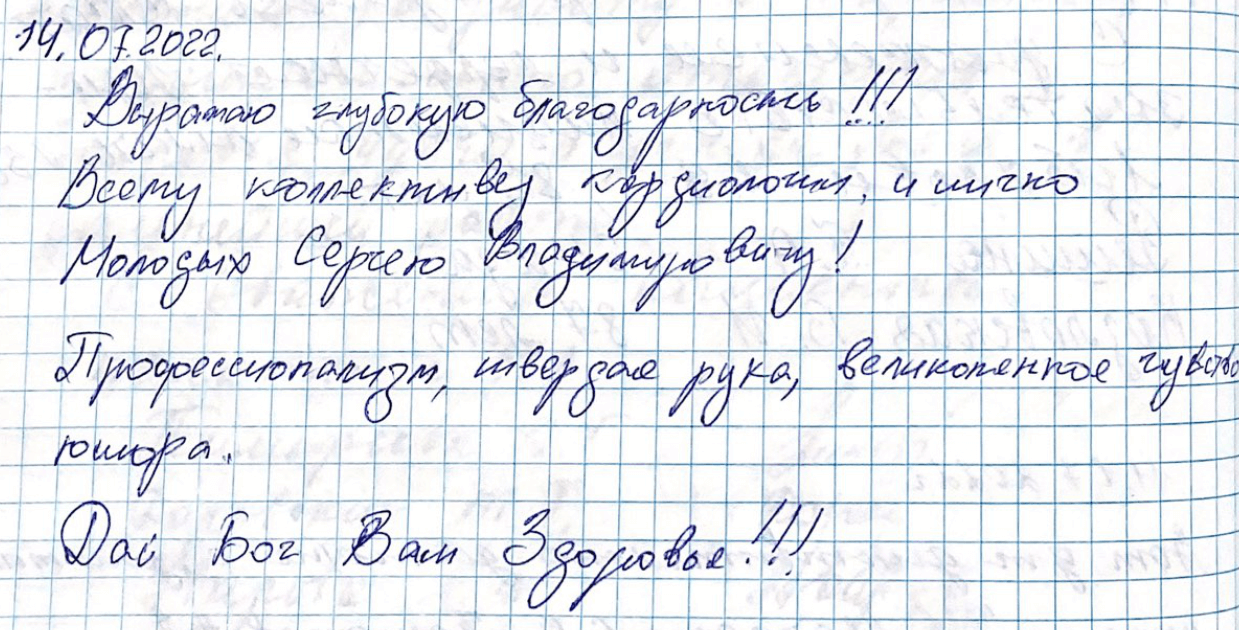 14.07.2022.
Выражаю глубокую благодарность!!!
Всему коллективу кардиологии, и лично
Молодых Сергею Владимировичу!
Профессионализм, твердая рука, великолепное чувство
юмора.
Дай Бог Вам Здоровья!!!